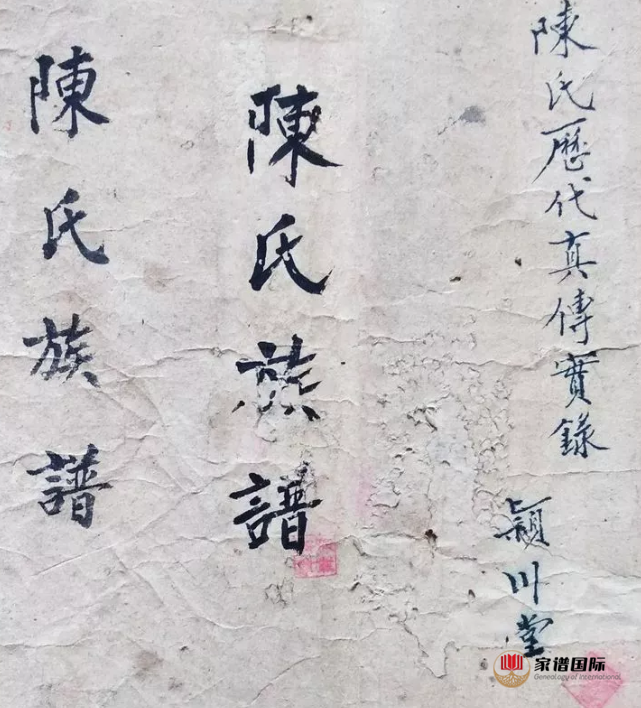 陳氏歷代真傳實錄
穎川堂
陳氏族譜
陳氏族譜
家谱国际
Genealogy of International